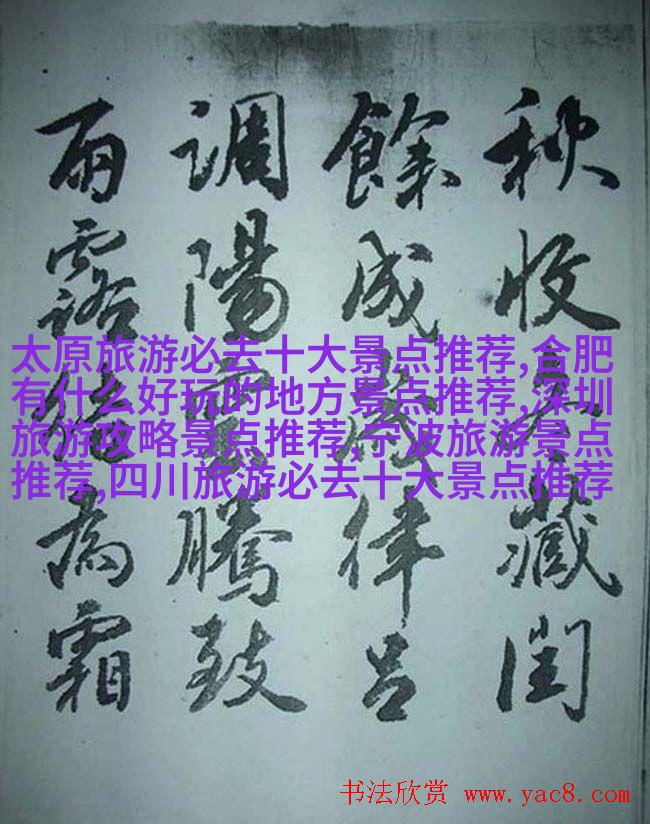 秋收冬藏閏
餘成歲律呂
調陽雲騰致
雨露結為霜
太原旅游必去十大景点推荐,合肥
有什么好玩的地方景点推荐,深圳
旅游攻略景点推荐,宁波旅游景点
推荐,四川旅游必去十大景点推荐
书法欣赏 www.yac8.com